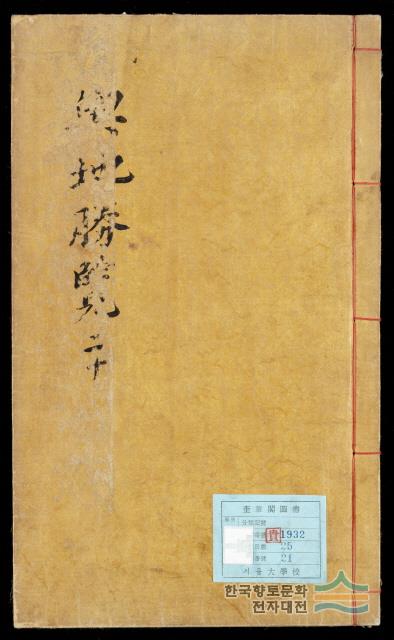 輿地勝覽 二十
奎章閣圖書
貴 1932
25
21
서울大學校
한국향토문화
전자대전